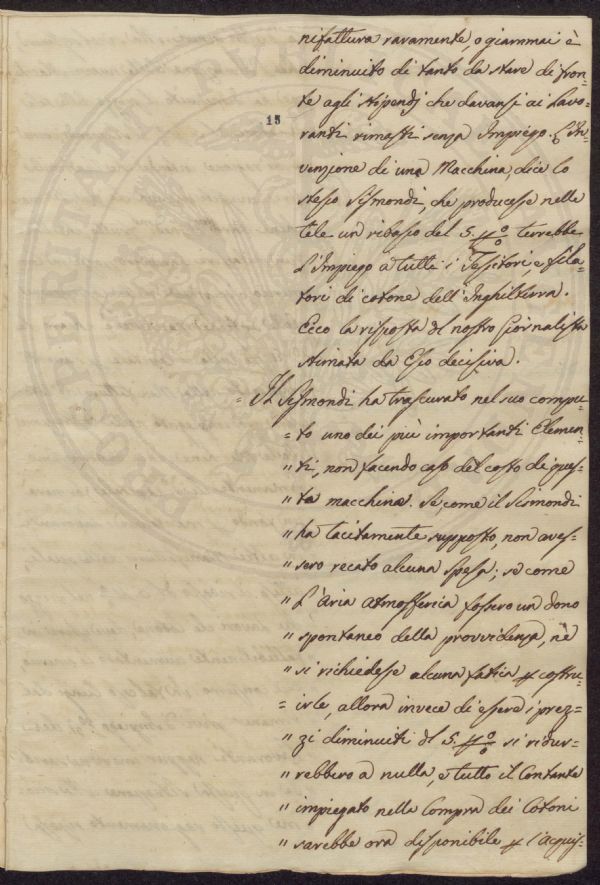 nifattura raramente, o giammai è
diminuito di tanto da stare di fron-
te agli stipendj che davansi ai Lavo-
15
ranti rimasti senza Impiego. L'In-
venzione di una Macchina, dice lo
stesso Sismondi, che producesse nelle
tele un ribasso del 5. p% torrebbe
l'Impiego a tutti i Tessitori, e fila-
tori di cotone dell'Inghilterra.
Ecco la risposta del nostro Giornalista
stimata da Esso decisiva.
= Il Sismondi ha trascurato nel suo compu-
= to uno dei più importanti Elemen-
" ti, non facendo caso del costo di ques-
" ta macchina. Se, come il Sismondi
" ha tacitamente supposto, non aves-
" sero recato alcuna spesa; se come
" l'Aria Atmosferica fossero un dono
" spontaneo della provvidenza, nè
" si richiedesse alcuna fatica p costru-
= irle, allora invece di essere i prez-
" zi diminuiti del 5. p% si ridur-
" rebbero a nulla, e tutto il Contante
" impiegato nella Compra dei Cotoni
" sarebbe ora disponibile p l'acquis-